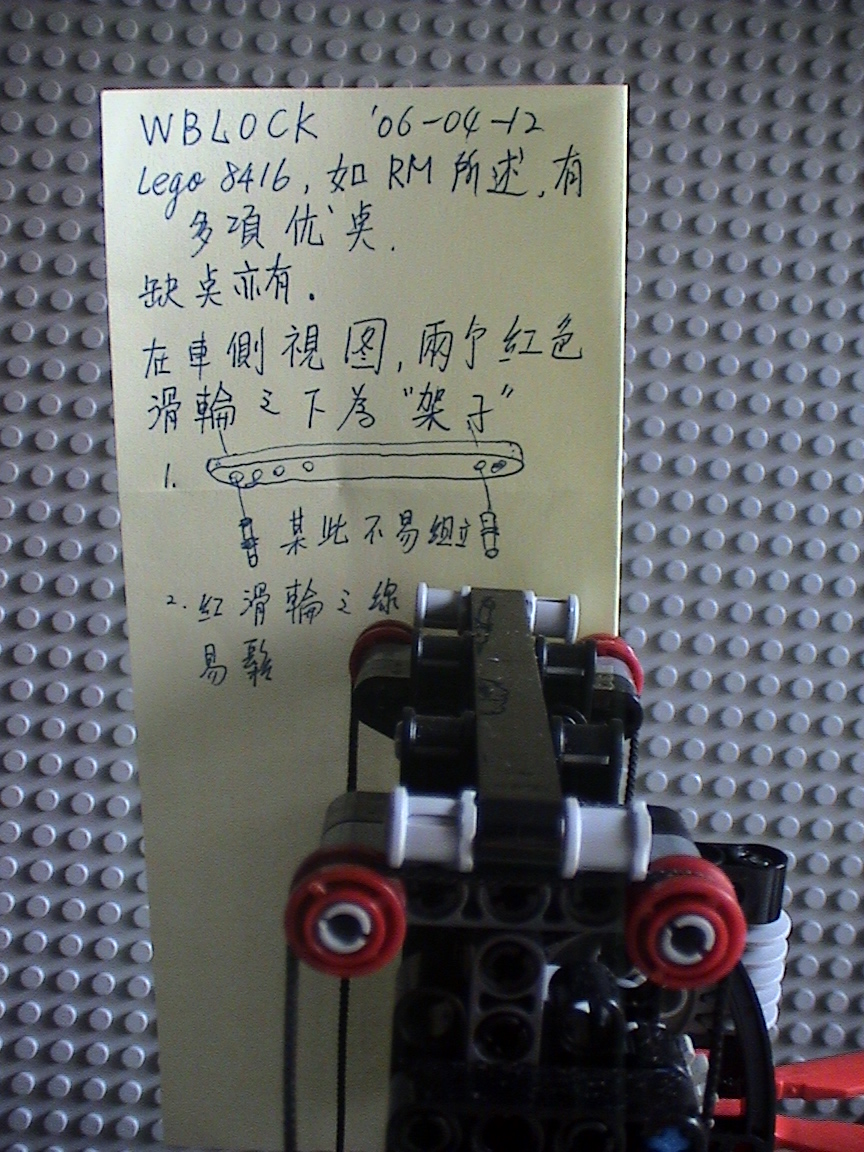 WBLOCK '06-04-12
Lego 8416, 如 RM 所述, 有
多項优点.
缺点亦有.
在車側視图, 兩个红色
滑輪之下為 "架子"
1.
某此不易組立
2. 红滑輪之線
易鬆